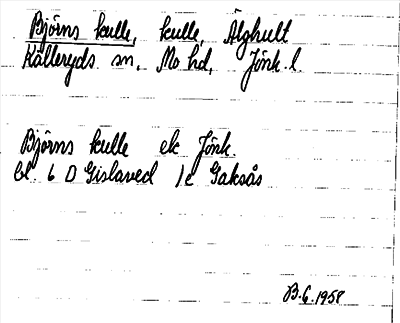 Björns kulle, kulle, Älghult
Kålleryds sn, Mo hd, Jönk. l
Björns kulle ek Jönk.
bl 6 D Gislaved 1c Gaksås
B.G. 1958